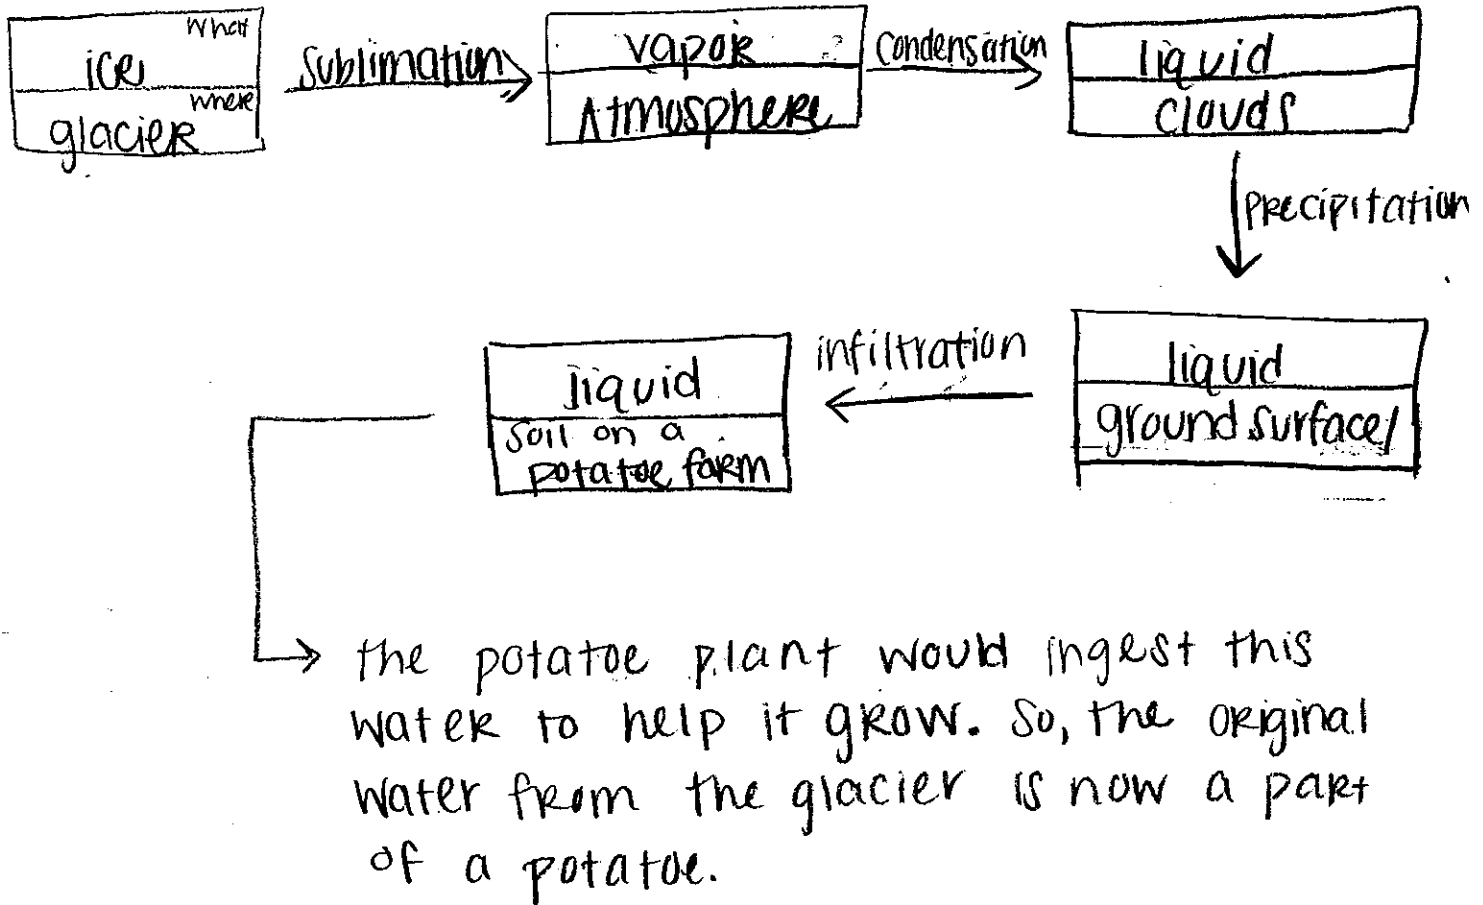 What
ice
where
glacier
sublimation
vapor
Atmosphere
condensation
liquid
clouds
precipitation
liquid
ground surface/
infiltration
liquid
soil on a
potatoe farm
the potatoe plant would ingest this
water to help it grow. So, the original
water from the glacier is now a part
of a potatoe.